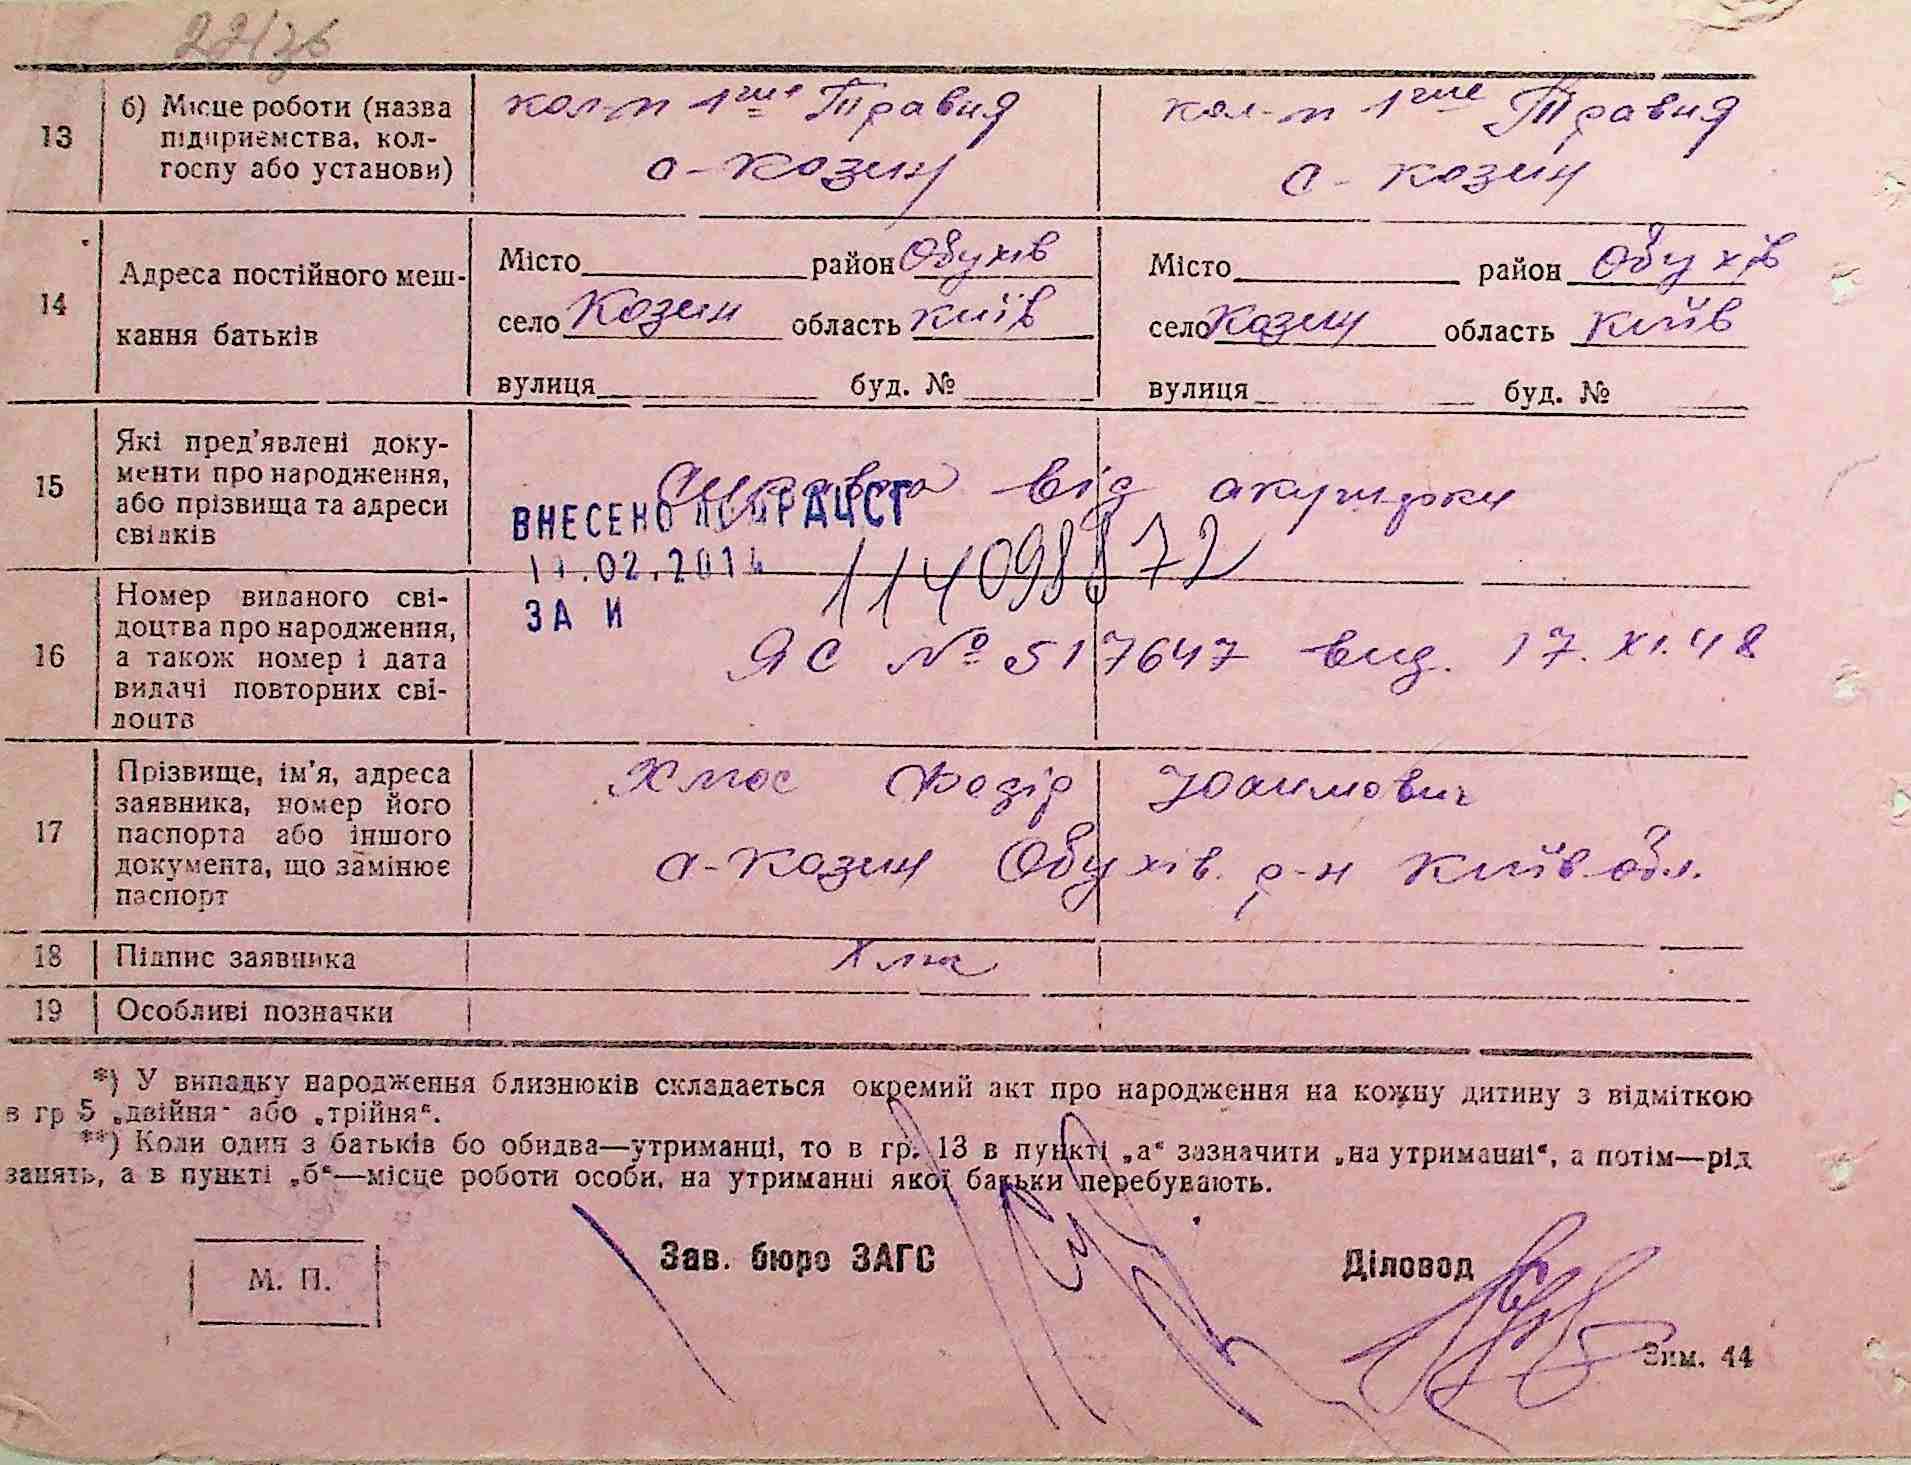 22/зв
13 б) Місце роботи (назва підприємства, колгоспу або установи)
кол-п 1ше Травня
с-Козин
кол-п 1ше Травня
с-Козин
14 Адреса постійного мешкання батьків
Місто район Обухів
село Козин область Київ
вулиця буд. №
Місто район Обухів
село Козин область Київ
вулиця буд. №
15 Які пред'явлені документи про народження, або прізвища та адреси свідків
Справка від акушерки
ВНЕСЕНО ДРАЦСГ
.02.201
ЗА И
114098872
16 Номер виданого свідоцтва про народження, а також номер і дата видачі повторних свідоцтв
ЯС № 517647 вид. 17.XI.48
17 Прізвище, ім'я, адреса заявника, номер його паспорта або іншого документа, що замінює паспорт
Хмос Федір Юхимович
с-Козин Обухів. р-н Київ. обл.
18 Підпис заявника
19 Особливі позначки
*) У випадку народження близнюків складається окремий акт про народження на кожну дитину з відміткою
в гр 5 „двійня" або „трійня".
**) Коли один з батьків бо обидва—утриманці, то в гр. 13 в пункті „а" зазначити „на утриманні", а потім—рід
занять, а в пункті „б"—місце роботи особи, на утриманні якої батьки перебувають.
М. П.
Зав. бюро ЗАГС
Діловод
Зим. 44